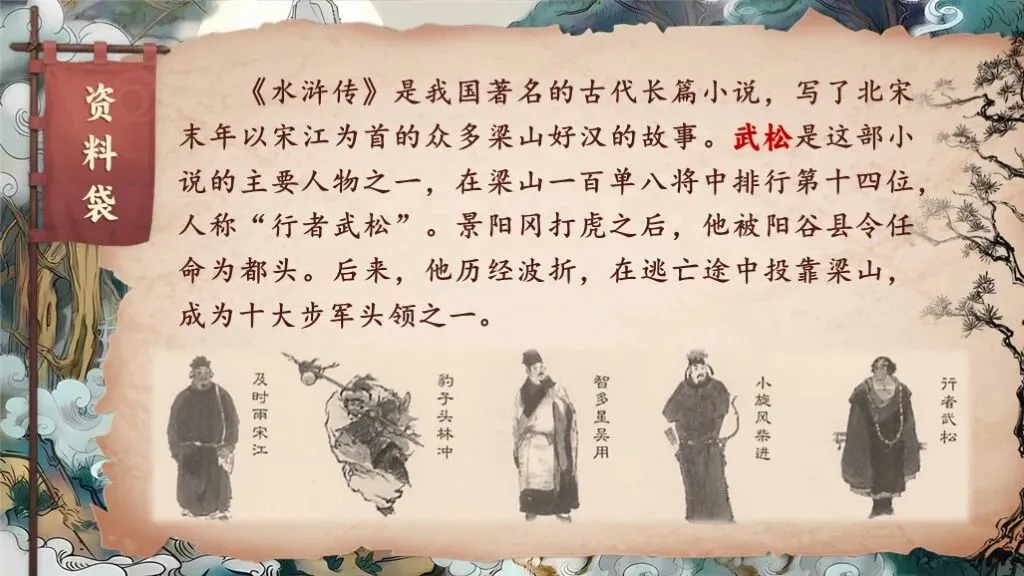 资料袋
《水浒传》是我国著名的古代长篇小说，写了北宋
末年以宋江为首的众多梁山好汉的故事。武松是这部小
说的主要人物之一，在梁山一百单八将中排行第十四位，
人称“行者武松”。景阳冈打虎之后，他被阳谷县令任
命为都头。后来，他历经波折，在逃亡途中投靠梁山，
成为十大步军头领之一。
及时雨宋江
豹子头林冲
智多星吴用
小旋风柴进
行者武松